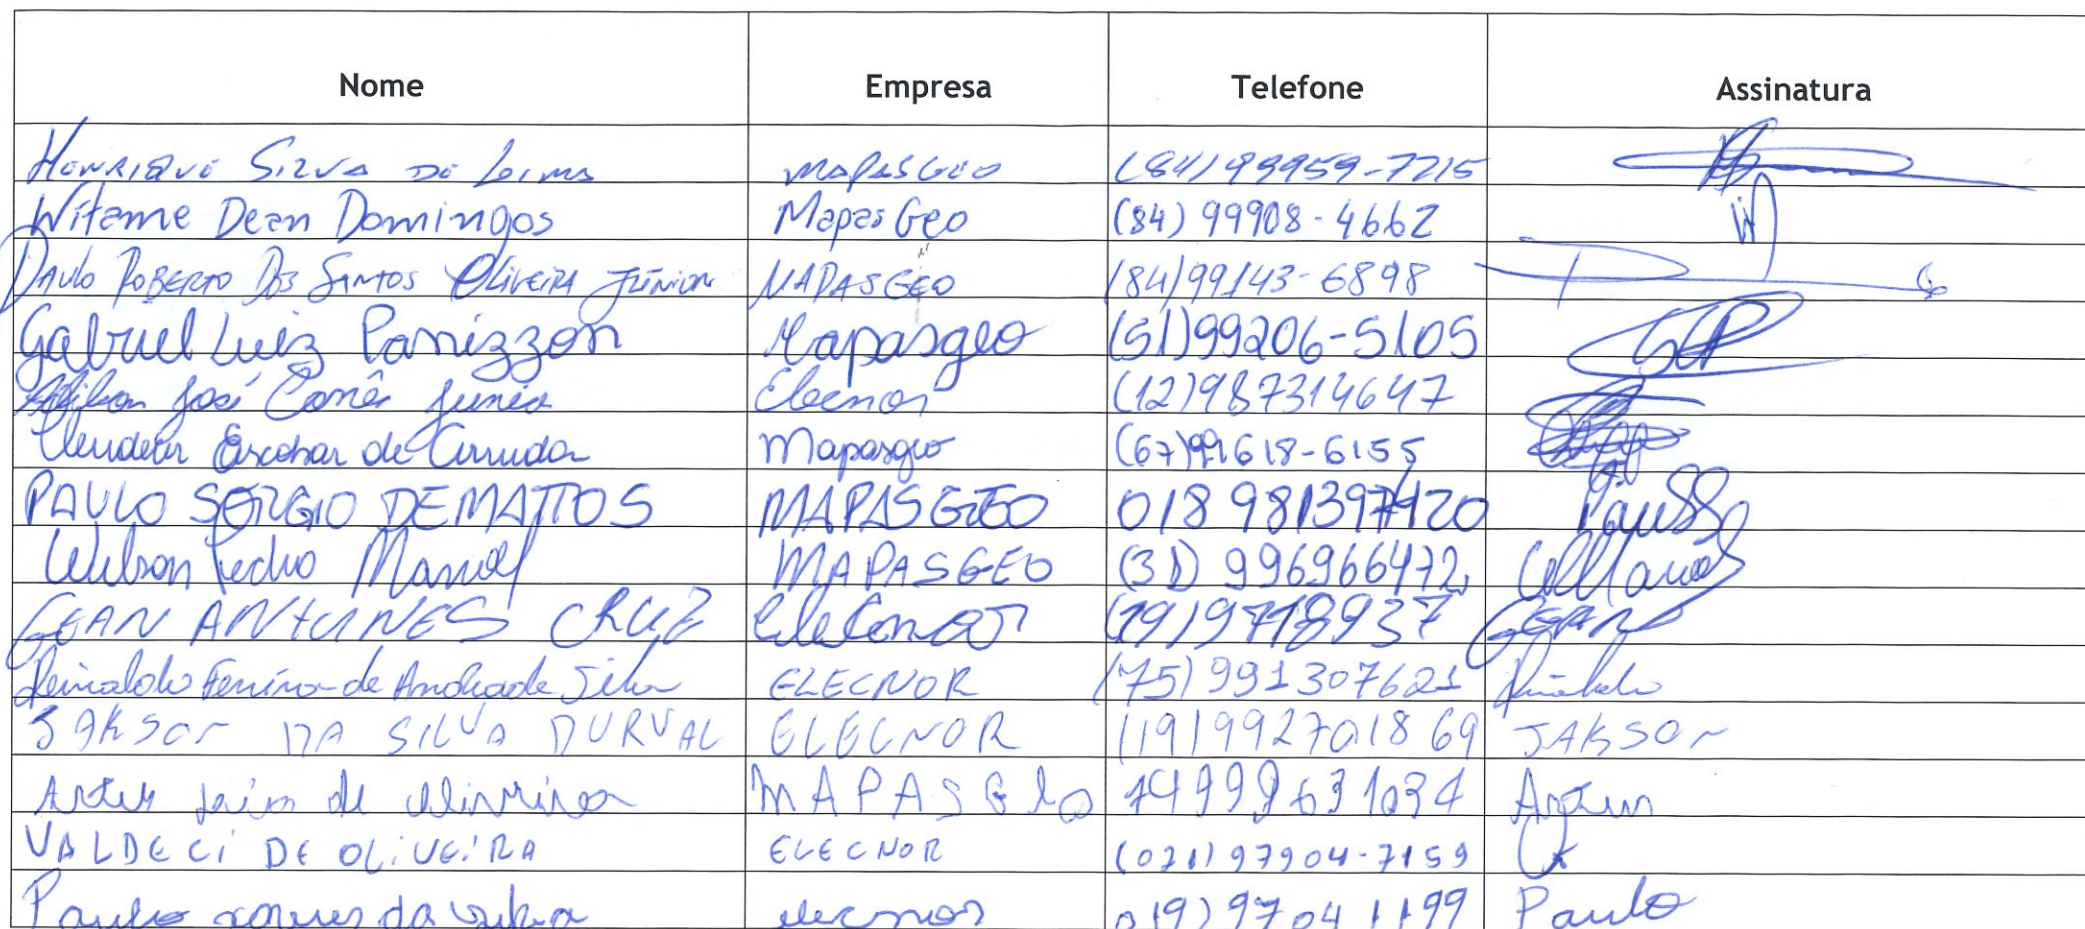 Nome Empresa Telefone Assinatura
HENRIQUE SILVA DE LIMA MAPASGEO (84) 99959-7215
Witame Dean Domingos MapasGeo (84) 99908-4662
PAULO ROBERTO DOS SANTOS OLIVEIRA JÚNIOR MAPASGEO (84) 99143-6898
Gabriel Luiz Panizzon Mapasgeo (51) 99206-5105
José Junior Elecnor (12) 987314647
Escobar de Arruda Mapasgeo (67) 99618-6155
PAULO SERGIO DE MATTOS MAPASGEO 018 981397420
Wilson Pedro Manoel MAPASGEO (31) 996966472
GEAN ANTUNES CRUZ Elecnor GEAN
Reinaldo Ferreira de Andrade Silva ELECNOR (75) 991307621
JAKSON DA SILVA DURVAL ELECNOR (19) 992701869 JAKSON
de Oliveira MAPASGEO Artur
VALDECI DE OLIVEIRA ELECNOR
da Silva elecnor 019) 97041199 Paulo